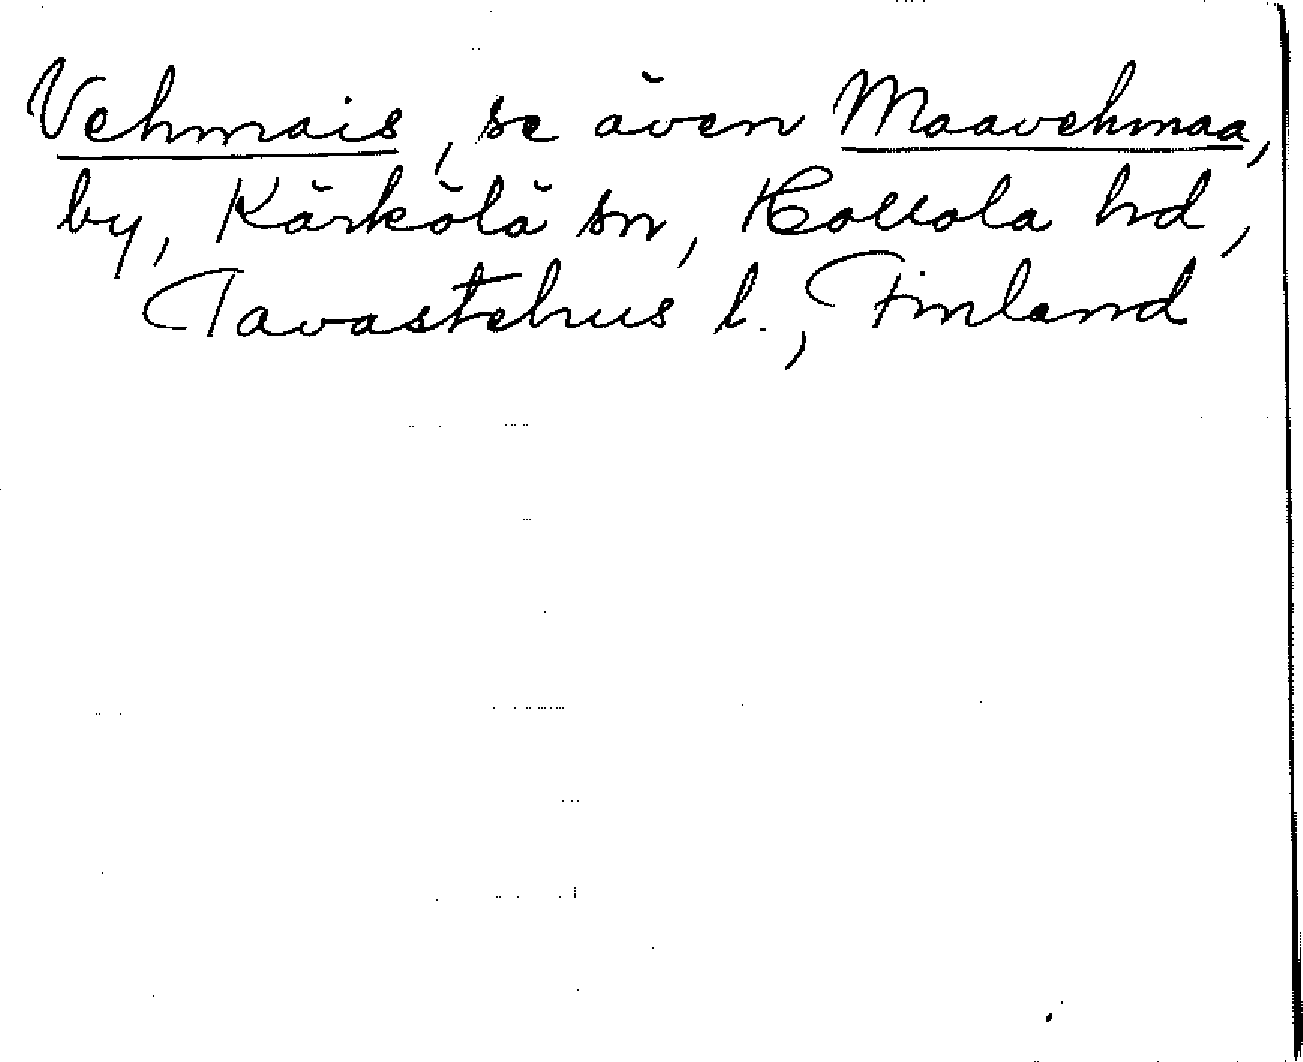 Vehmais, se även Maavehmaa,
by, Kärkölä sn, Hollola hd,
Tavastehus l., Finland